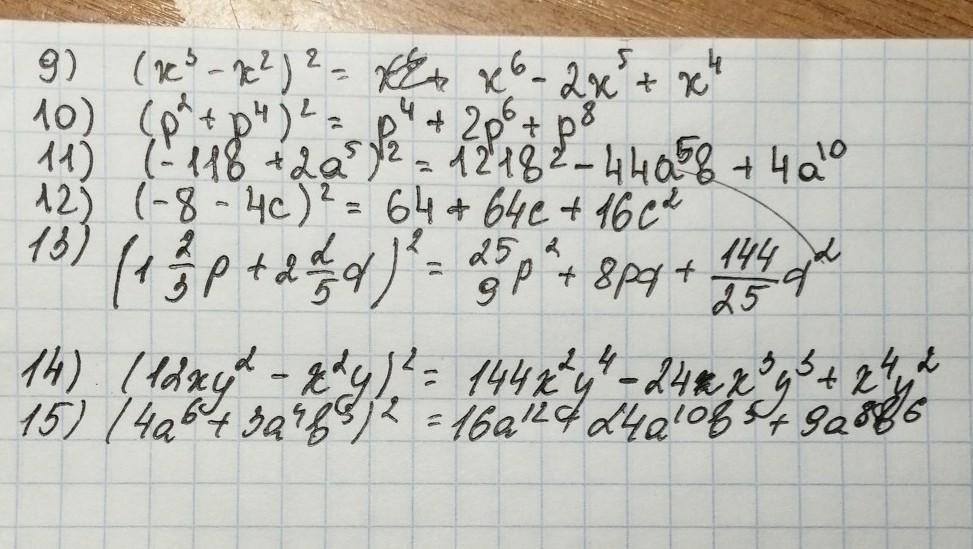 9) (x³ - x²)² = x⁶ - 2x⁵ + x⁴
10) (p² + p⁴)² = p⁴ + 2p⁶ + p⁸
11) (-11в + 2a⁵)² = 121в² - 44a⁵в + 4a¹⁰
12) (-8 - 4c)² = 64 + 64c + 16c²
13) (1 2/3 p + 2 2/5 q)² = 25/9 p² + 8pq + 144/25 q²
14) (12xy² - x²y)² = 144x²y⁴ - 24x³y³ + x⁴y²
15) (4a⁶ + 3a⁴в³)² = 16a¹² + 24a¹⁰в³ + 9a⁸в⁶